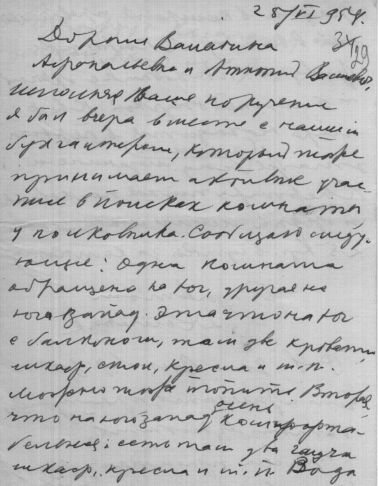 25/VI 954.
29
Дорогие Валентина
и
исполняя Ваше поручение
я был вчера вместе с нашим
бухгалтером, который тоже
принимает активное учас-
тие в поисках комнаты
у полковника. Сообщаю следу-
ющее: Одна комната
обращена на юг, другая на
юго запад. Эта что на юг
с балконом, там две кровати,
шкаф, стол, кресла и т.п.
можно тоже топить. Вторая,
что на юго запад очень комфорта-
бельная: есть там два
шкаф, кресла и т.п. Вода